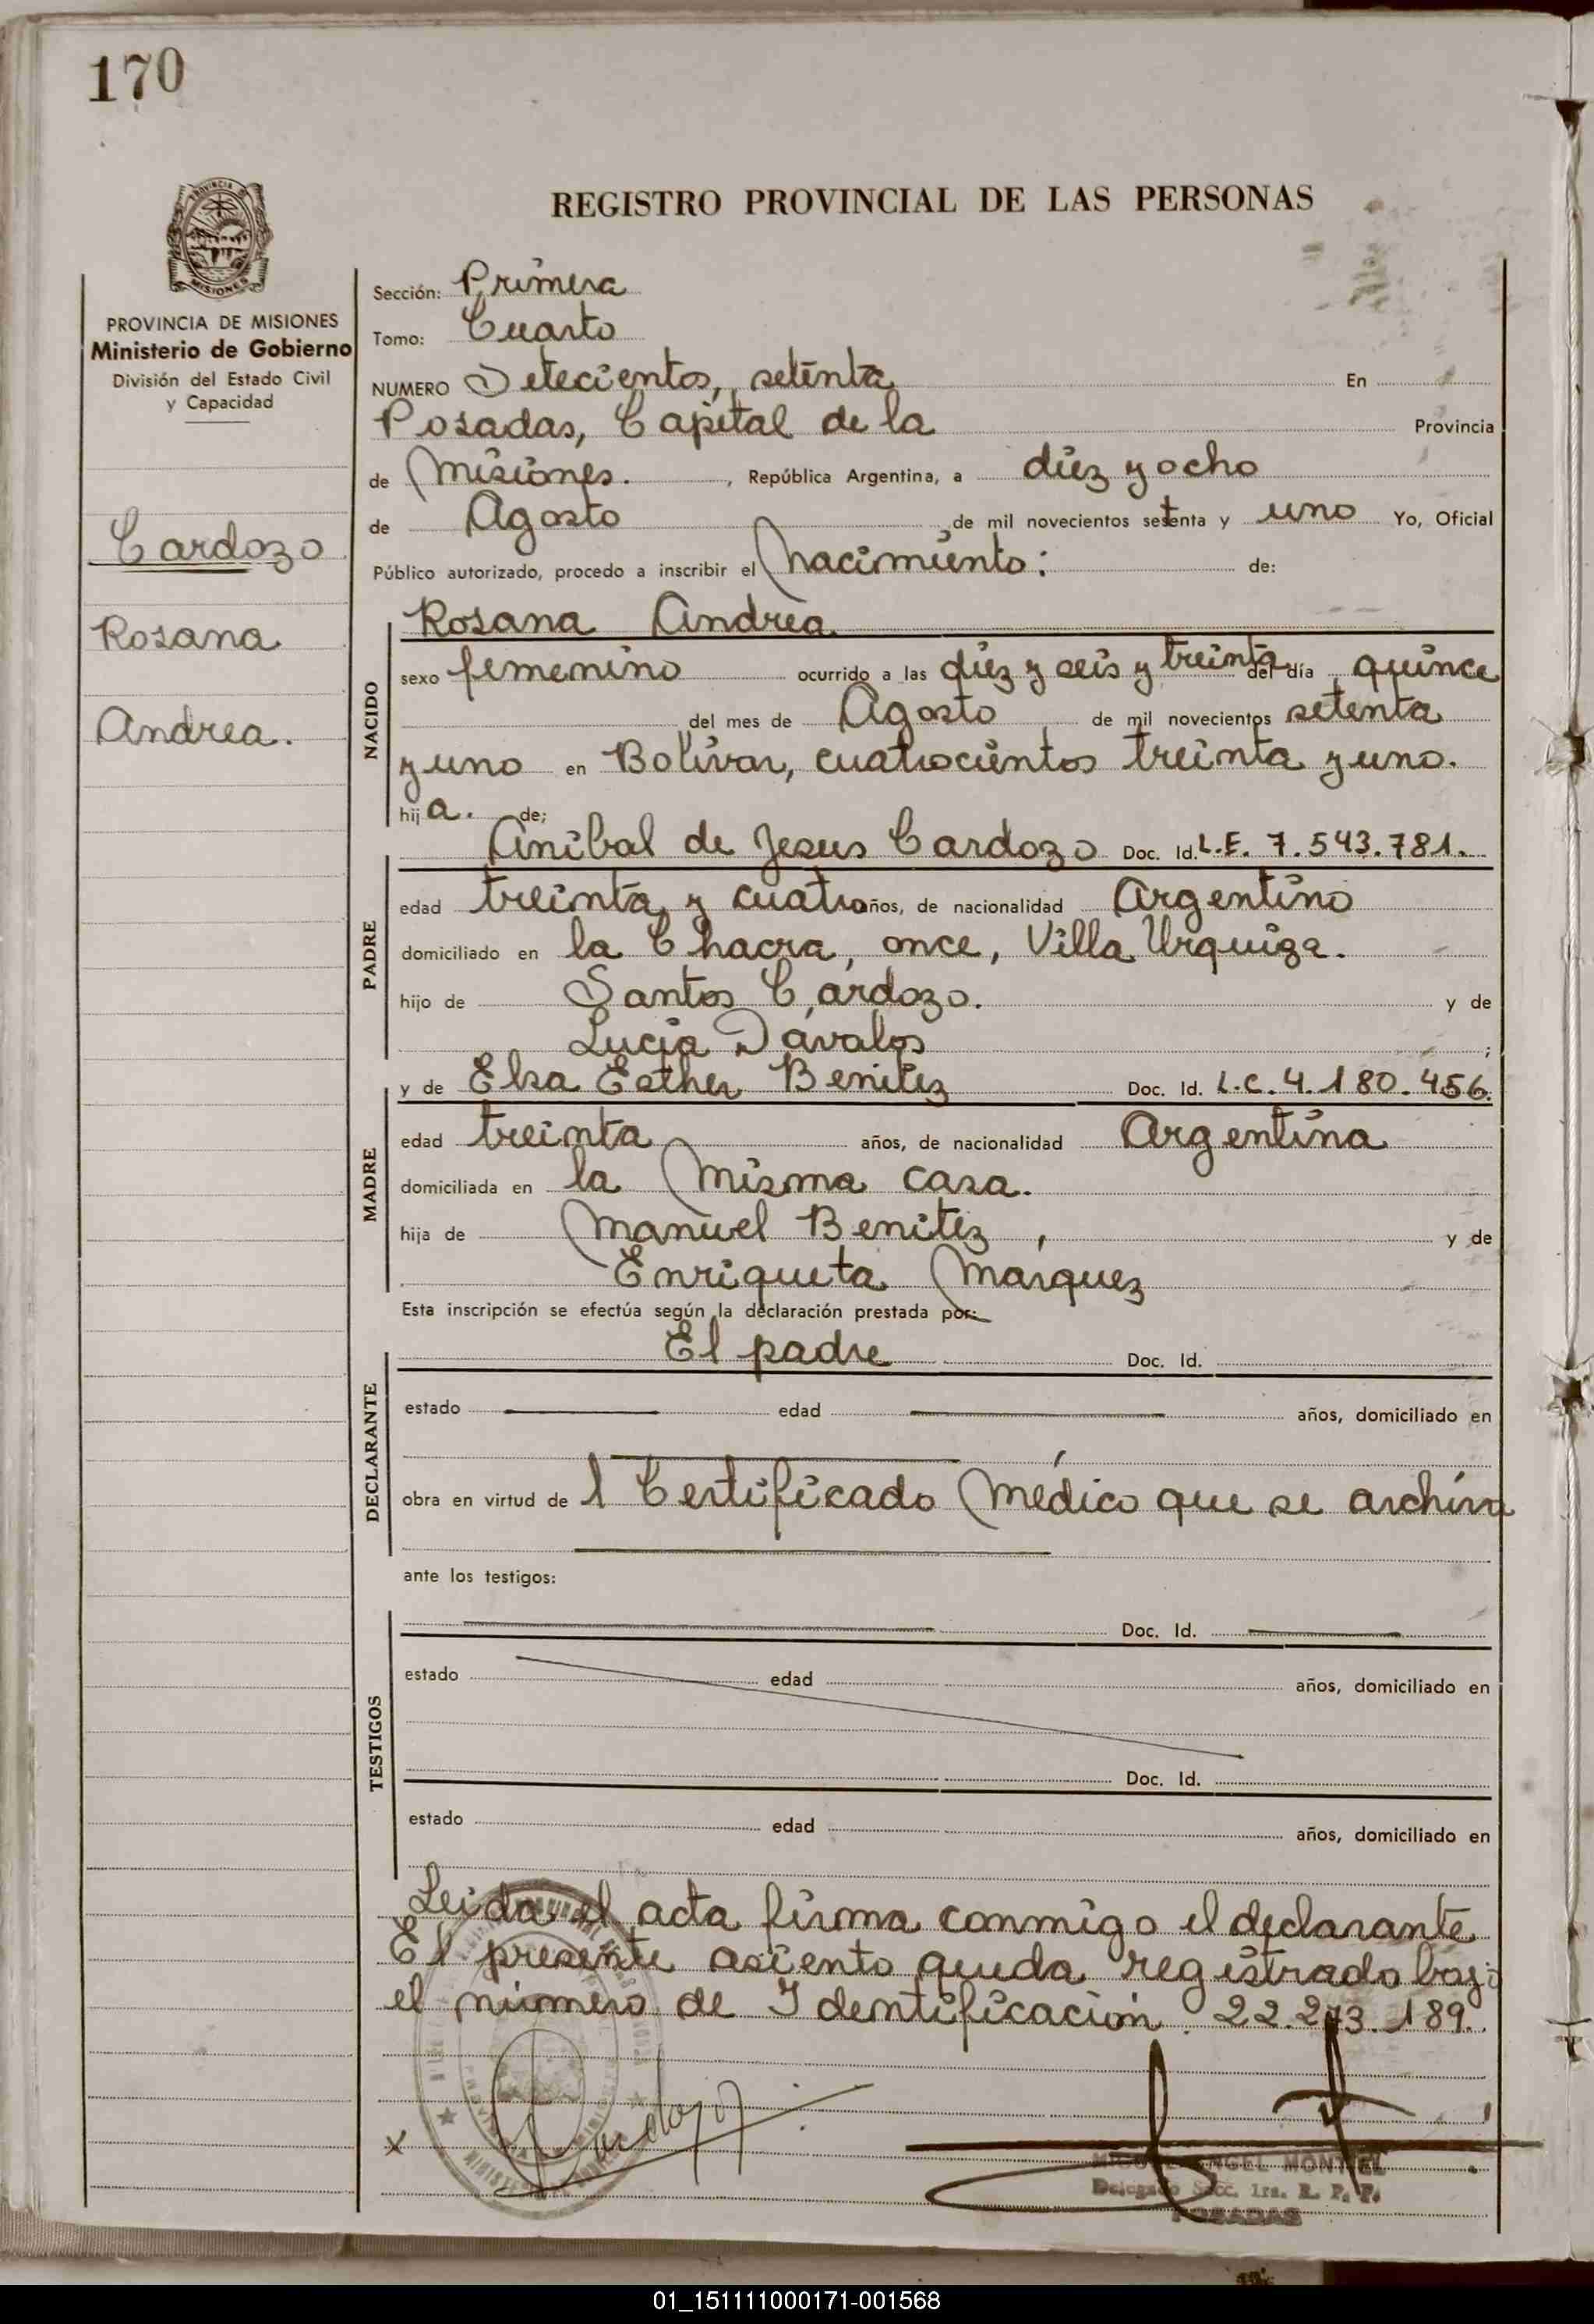 170
PROVINCIA DE
MISIONES
PROVINCIA DE MISIONES
Ministerio de Gobierno
División del Estado Civil
y Capacidad
Cardozo
Rosana
Andrea.
REGISTRO PROVINCIAL DE LAS PERSONAS
Sección: Primera
Tomo: Cuarto
NUMERO Setecientos, setenta En
Posadas, Capital de la Provincia
de Misiones. , República Argentina, a diez y ocho
de Agosto de mil novecientos setenta y uno Yo, Oficial
Público autorizado, procedo a inscribir el nacimiento: de:
NACIDO
Rosana Andrea
sexo femenino ocurrido a las diez y seis y treinta del día quince
del mes de Agosto de mil novecientos setenta
y uno en Bolívar, cuatrocientos treinta y uno.
hij a. de;
PADRE
Anibal de Jesus Cardozo Doc. Id. L.E. 7.543.781.
edad treinta y cuatro años, de nacionalidad Argentino
domiciliado en la Chacra, once, Villa Urquiza.
hijo de Santos Cardozo. y de
Lucia Dávalos ;
MADRE
y de Elsa Esther Benitez Doc. Id. L.C. 4.180.456.
edad treinta años, de nacionalidad Argentina
domiciliada en la misma casa.
hija de Manuel Benitez , y de
Enriqueta Marquez
Esta inscripción se efectúa según la declaración prestada por:
DECLARANTE
El padre Doc. Id.
estado edad años, domiciliado en
obra en virtud de l Certificado Médico que se archiva
ante los testigos:
TESTIGOS
Doc. Id.
estado edad años, domiciliado en
Doc. Id.
estado edad años, domiciliado en
Leida el acta firma conmigo el declarante
El presente asiento queda registrado bajo
el número de Identificación. 22.273.189.
x Cardozo
MIGUEL ANGEL MONTIEL
Delegado Secc. 1ra. R. P. P.
POSADAS
01_151111000171-001568